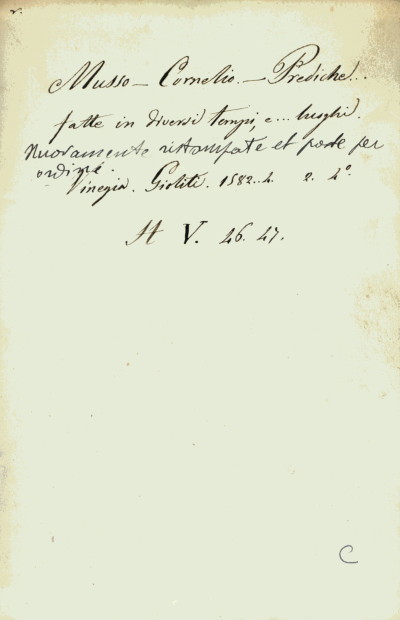 r.
Musso – Cornelio. – Prediche..
fatte in diversi tempi, e... luoghi.
Nuovamente ristampate et poste per
ordine.
Vinegia. Gioliti. 1582..4. 2. 4º.
A V. 46. 47.
C